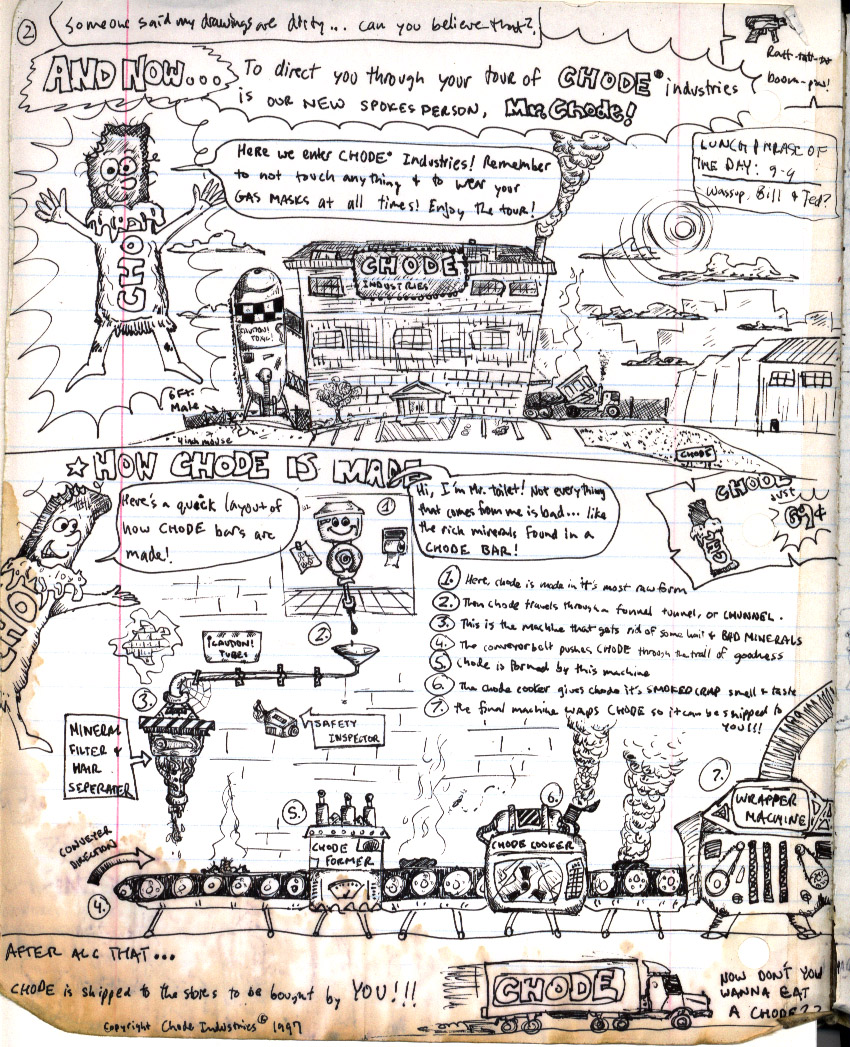 2
Someone said my drawings are dirty... can you believe that?
Ratt-tatt-tat
boom-pow!
AND NOW...
To direct you through your tour of CHODE® industries
is our new spokesperson, Mr. Chode!
Here we enter CHODE® Industries! Remember
to not touch anything & to wear your
GAS MASKS at all times! Enjoy the tour!
LUNCH PHRASE OF
THE DAY: 9-9
Wassup, Bill & Ted?
CHO
CHODE
INDUSTRIES
CAUTION!
TOXIC!
6ft.
Male
4 inch mouse
CHODE
HOW CHODE IS MADE
Here's a quick layout of
how CHODE bars are
made!
CHO
1
Hi, I'm Mr. toilet! Not everything
that comes from me is bad... like
the rich minerals found in a
CHODE BAR!
CHODE
JUST
69¢
1. Here, chode is made in it's most raw form
2. Then chode travels through a funnel tunnel, or CHUNNEL.
3. This is the machine that gets rid of some hair & BAD MINERALS
4. The conveyorbelt pushes CHODE through the trail of goodness
5. Chode is formed by this machine
6. The chode cooker gives chode it's SMOKED CRAP smell & taste
7. the final machine WAPS CHODE so it can be shipped to
YOU!!!
2.
¡CAUTION!
TUBES
3.
SAFETY
INSPECTOR
MINERAL
FILTER &
HAIR
SEPERATER
5.
6.
7.
CHODE
FORMER
CHODE COOKER
WRAPPER
MACHINE
CONVEYER
DIRECTION
4.
AFTER ALL THAT...
CHODE is shipped to the stores to be bought by YOU!!!
CHODE
NOW DON'T YOU
WANNA EAT
A CHODE??
Copyright Chode Industries® 1997